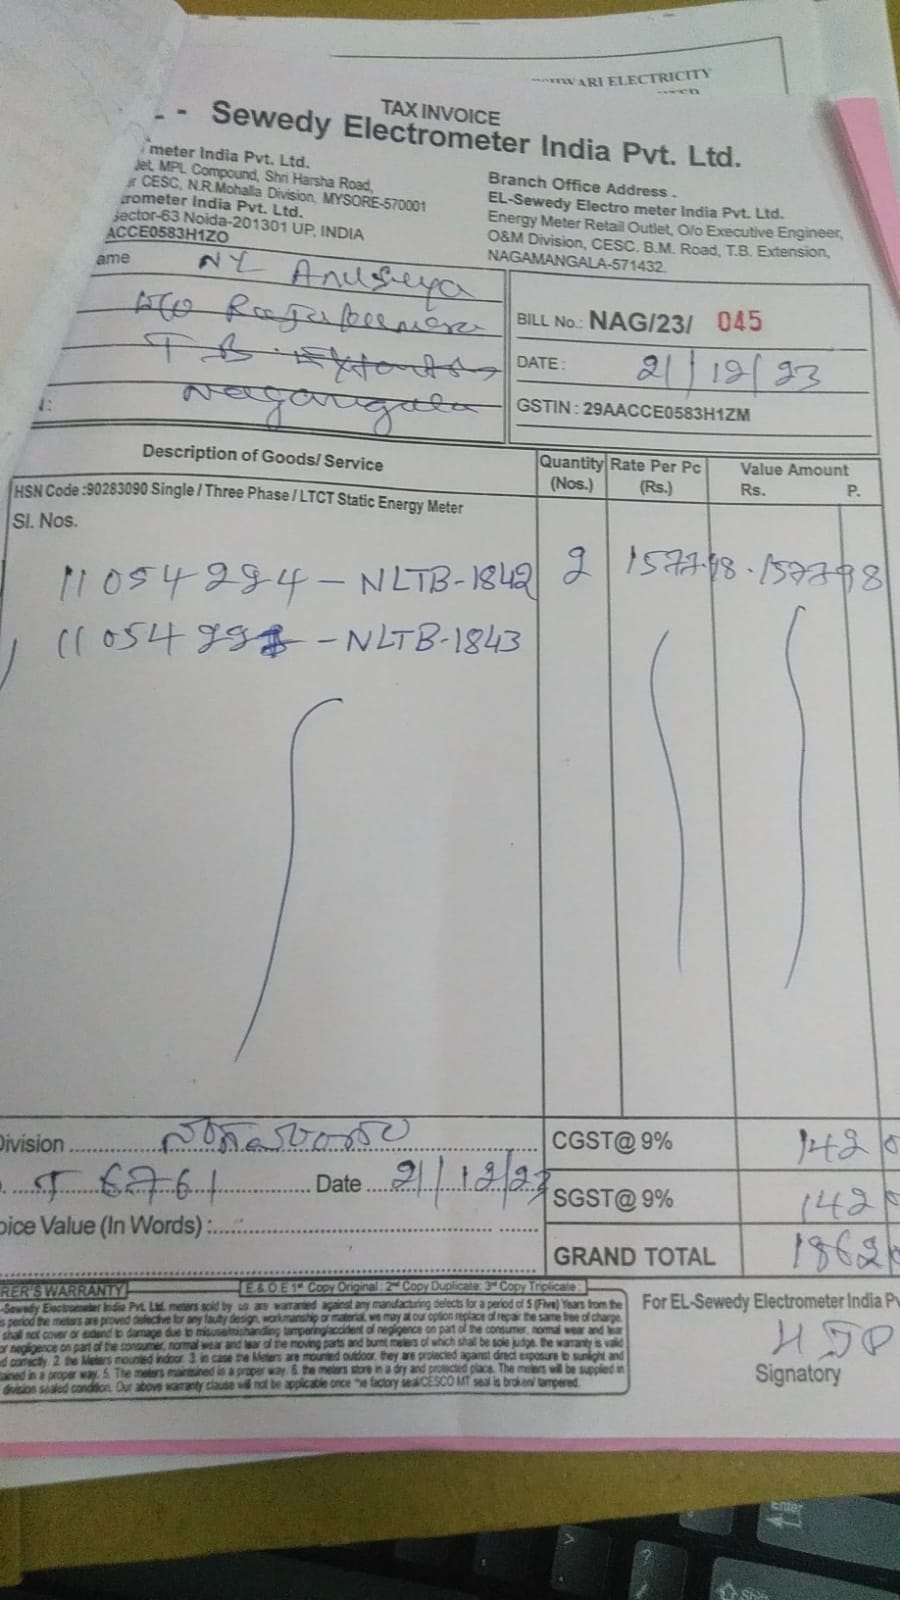 WARI ELECTRICITY
TAX INVOICE
- Sewedy Electrometer India Pvt. Ltd.
meter India Pvt. Ltd.
let, MPL Compound, Shri Harsha Road,
CESC, N.R.Mohalla Division, MYSORE-570001
trometer India Pvt. Ltd.
Sector-63 Noida-201301 UP, INDIA
ACCE0583H1ZO
Branch Office Address .
EL-Sewedy Electro meter India Pvt. Ltd.
Energy Meter Retail Outlet, O/o Executive Engineer,
O&M Division, CESC. B.M. Road, T.B. Extension,
NAGAMANGALA-571432.
ame NL Anuseya
T B
BILL No.: NAG/23/ 045
DATE : 21/12/23
GSTIN : 29AACCE0583H1ZM
Description of Goods/ Service
Quantity (Nos.)
Rate Per Pc (Rs.)
Value Amount
Rs. P.
HSN Code :90283090 Single / Three Phase / LTCT Static Energy Meter
Sl. Nos.
11054224 – NLTB-1842 2 1577.98 1577 98
– NLTB-1843
Division
6761 Date 21/12/23
oice Value (In Words) :
CGST@ 9% 142
SGST@ 9% 142
GRAND TOTAL 1862
RER'S WARRANTY
E & O E 1st Copy Original : 2nd Copy Duplicate: 3rd Copy Triplicate :
-Sewedy Electrometer India Pvt. Ltd. meters sold by us are warranted against any manufacturing defects for a period of 5 (Five) Years from the
s period the meters are proved defective for any faulty design, workmanship or material, we may at our option replace of repair the same free of charge.
shall not cover or extend to damage due to misuse/mishandling tampering/accident of negligence on part of the consumer, normal wear and tear
or negligence on part of the consumer, normal wear and tear of the moving parts and burnt meters of which shall be sole judge. the warranty is valid
d correctly. 2. the Meters mounted indoor. 3. in case the Meters are mounted outdoor, they are protected against direct exposure to sunlight and
tained in a proper way. 5. The meters maintained in a proper way. 6. the meters store in a dry and protected place. The meters will be supplied in
division sealed condition. Our above warranty clause will not be applicable once the factory seal/CESCO MT seal is broken/ tampered.
For EL-Sewedy Electrometer India Pv
Signatory
Enter
Shift